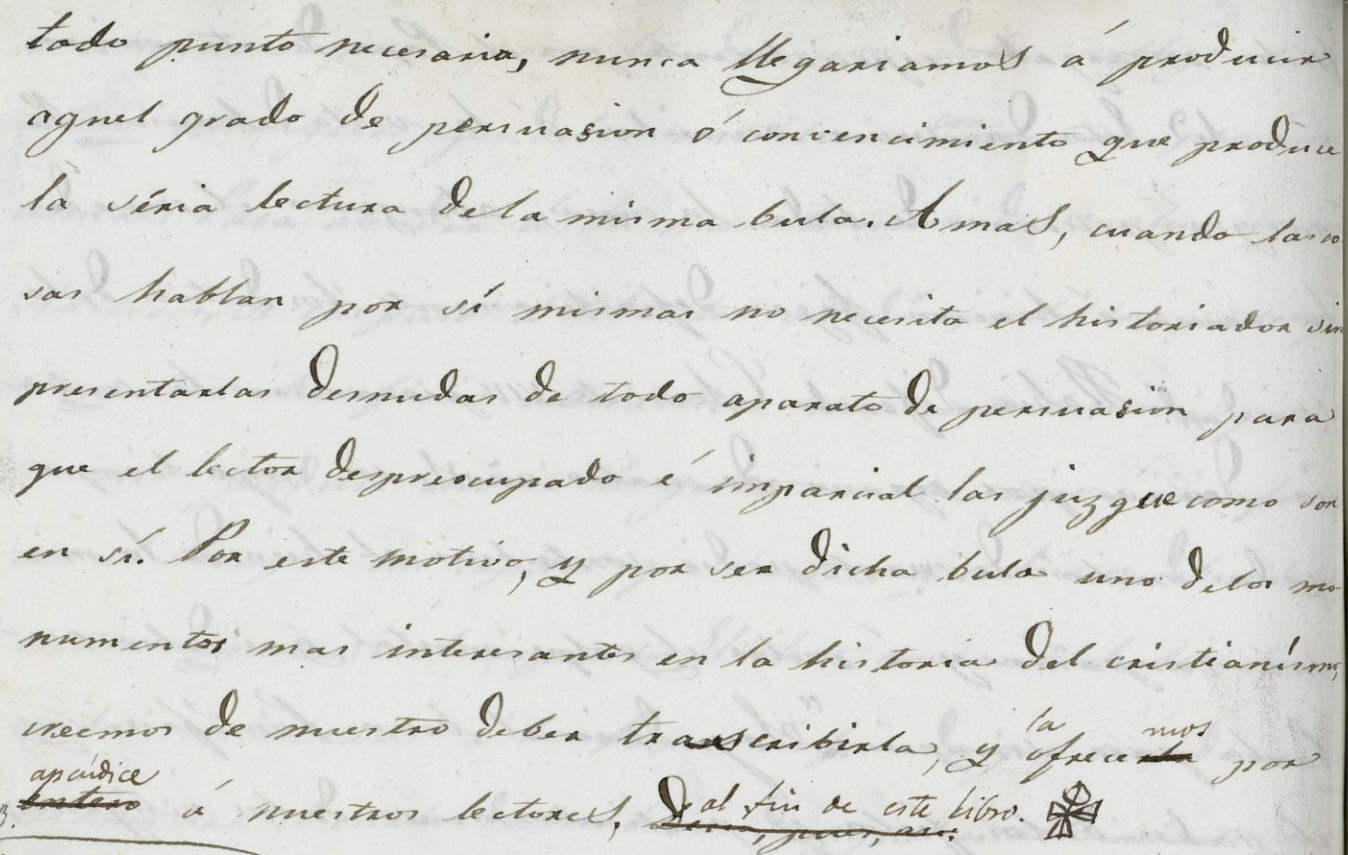 todo punto necesaria, nunca llegariamos á producir
aquel grado de persuasion ó convencimiento que produce
la séria lectura de la misma bula. A mas, cuando las co
sas hablan por sí mismas no necesita el historiador sin
presentarlas desnudas de todo aparato de persuasion para
que el lector despreocupado é imparcial las juzgue como son
en sí. Por este motivo, y por ser dicha bula uno de los mo
numentos mas interesantes en la historia del cristianísmo,
creemos de nuestro deber transcribirla, y la ofrecemos por
apéndice á nuestros lectores, al fin de este libro.